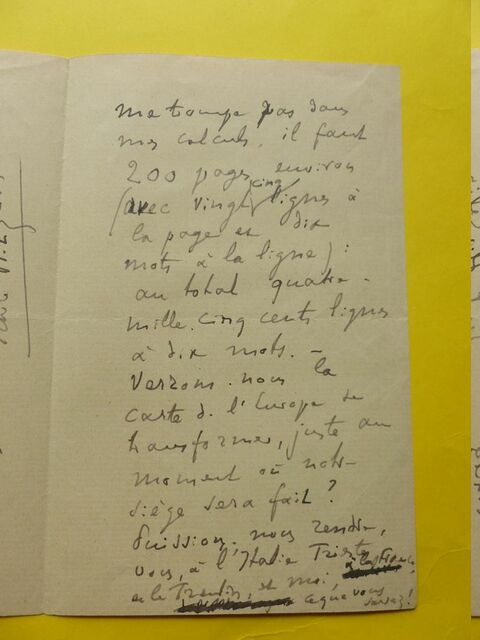 me trompe pas dans
mes calculs, il faut
200 pages environ
(avec vingt cinq lignes à
la page et dix
mots à la ligne) :
au total quatre-
mille cinq cents lignes
à dix mots. –
Verrons-nous la
carte de l'Europe se
transformer, juste au
moment où notre
siège sera fait ?
Puissions-nous rendre,
vous, à l'Italie Trieste
et le Trentin, et moi, à la France,
ce que vous
savez !